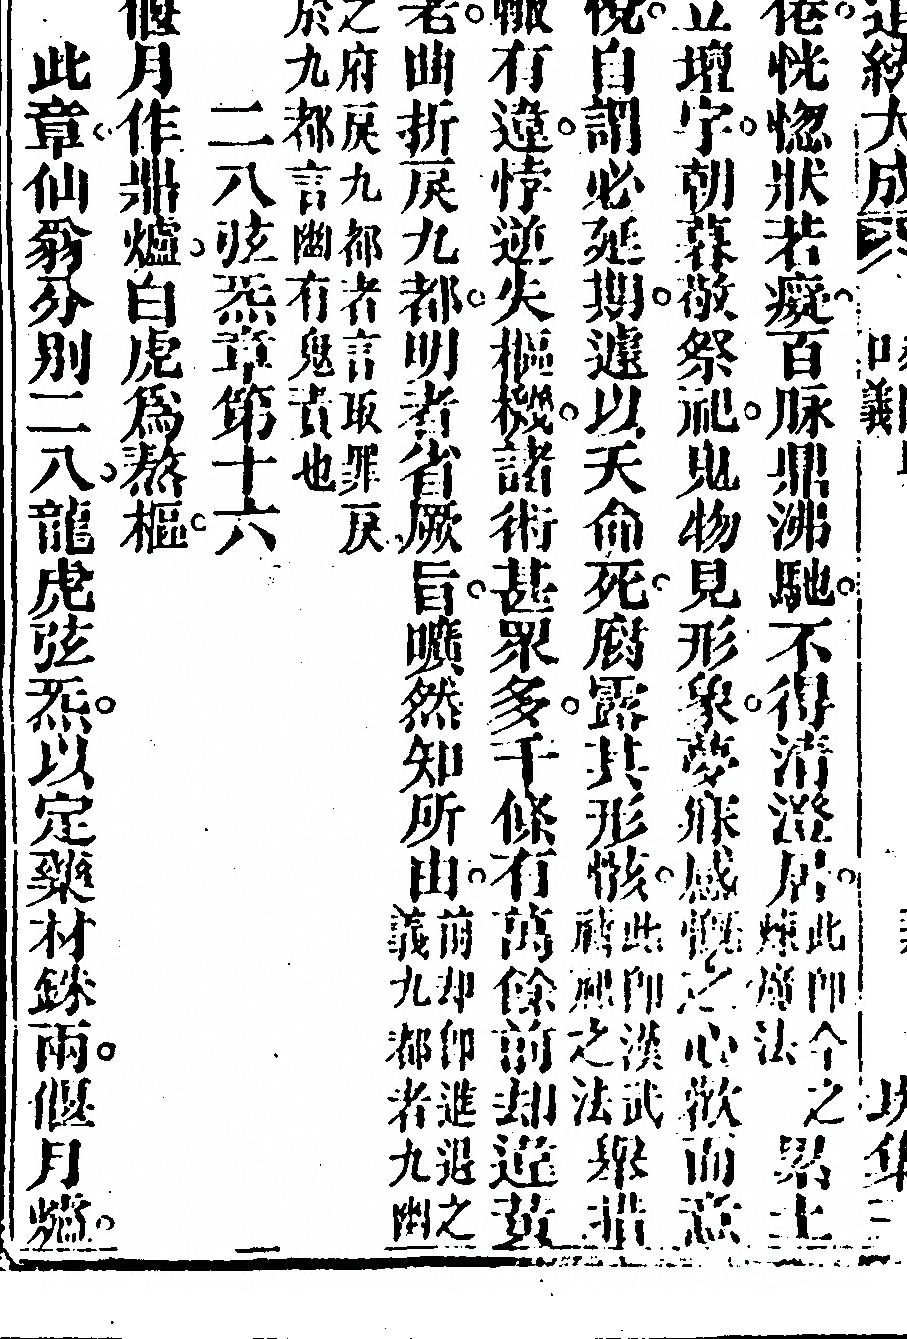 道統大成
倦。恍惚狀若癡。百脉鼎沸馳。不得清澄居。此即今之煉魔法累土
立壇宇。朝暮敬祭祀。鬼物見形象。夢寐感慨之心歡而意
悅。自謂必延期。遽以夭命死。腐露其形骸。此即漢武禱祀之法舉措
輙有違。悖逆失樞機。諸術甚眾多。千條有萬餘前却違黃
老。曲折戾九都。明者省厥旨。曠然知所由。前却即進退之義九都者九幽
之府戾九都者言取罪戾
於九都言幽有鬼責也
二八弦炁章第十六
偃月作鼎爐。白虎爲熬樞。
此章。仙翁分別二八。龍虎弦炁。以定藥材銖兩。偃月爐。